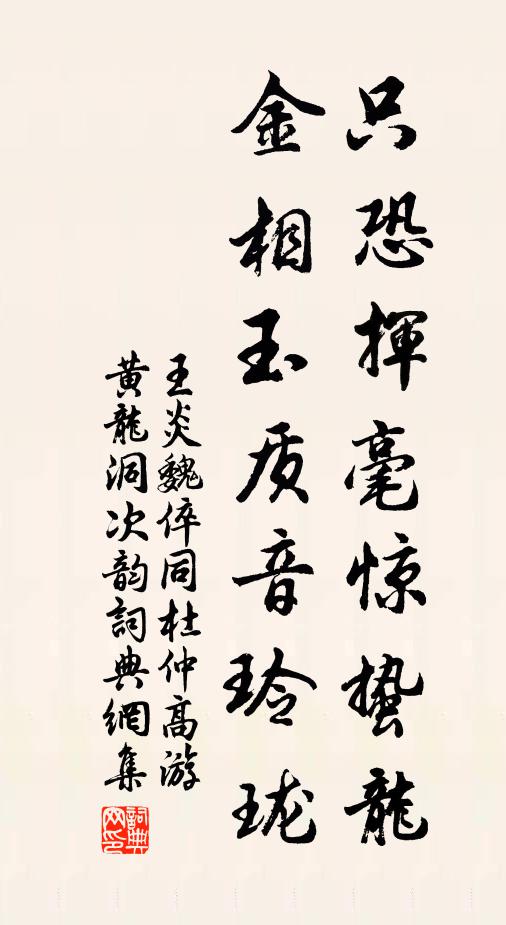 只恐揮毫惊蛰龍
金相玉质音玲珑
王炎魏倅同杜仲高游
黄龍洞次韵詞典網集
詞典网印